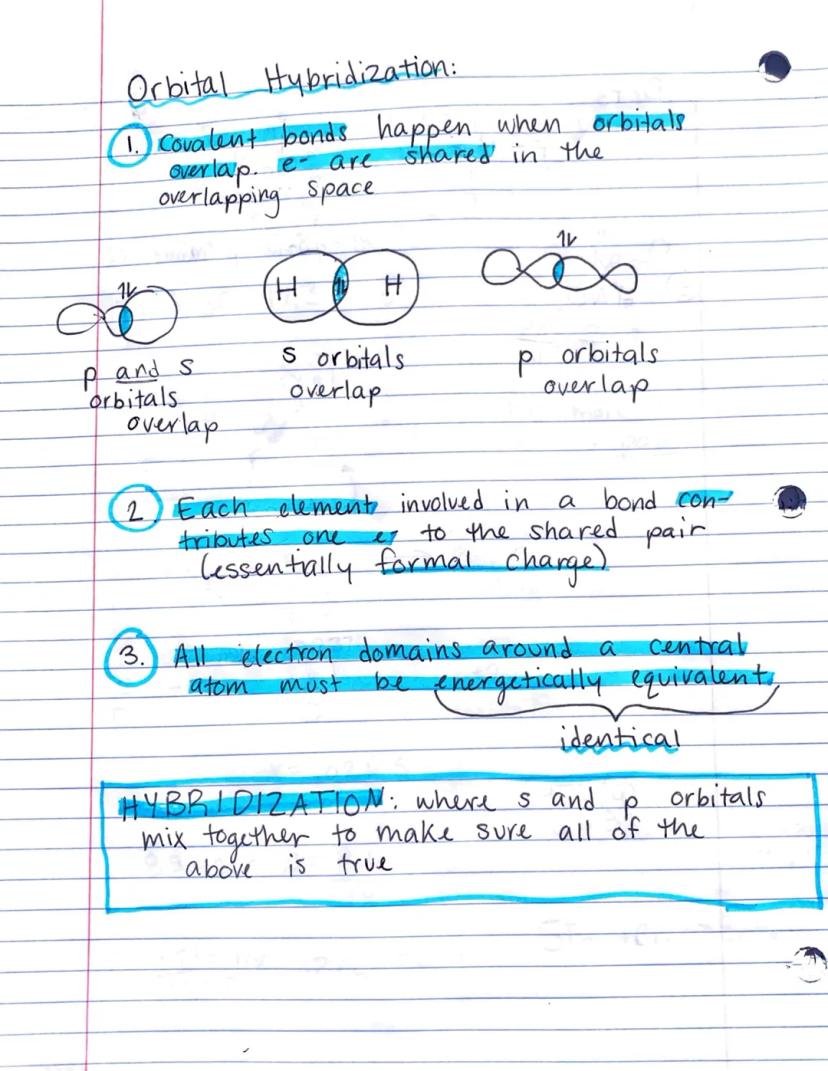 Orbital Hybridization:
1. Covalent bonds happen when orbitals
overlap. e- are shared in the
overlapping space
1↿⇂
H 1↿⇂ H
1↿⇂
p and s
orbitals
overlap
s orbitals
overlap
p orbitals
overlap
2. Each element involved in a bond con-
tributes one e- to the shared pair
(essentially formal charge)
3. All electron domains around a central
atom must be energetically equivalent.
identical
HYBRIDIZATION: where s and p orbitals
mix together to make sure all of the
above is true